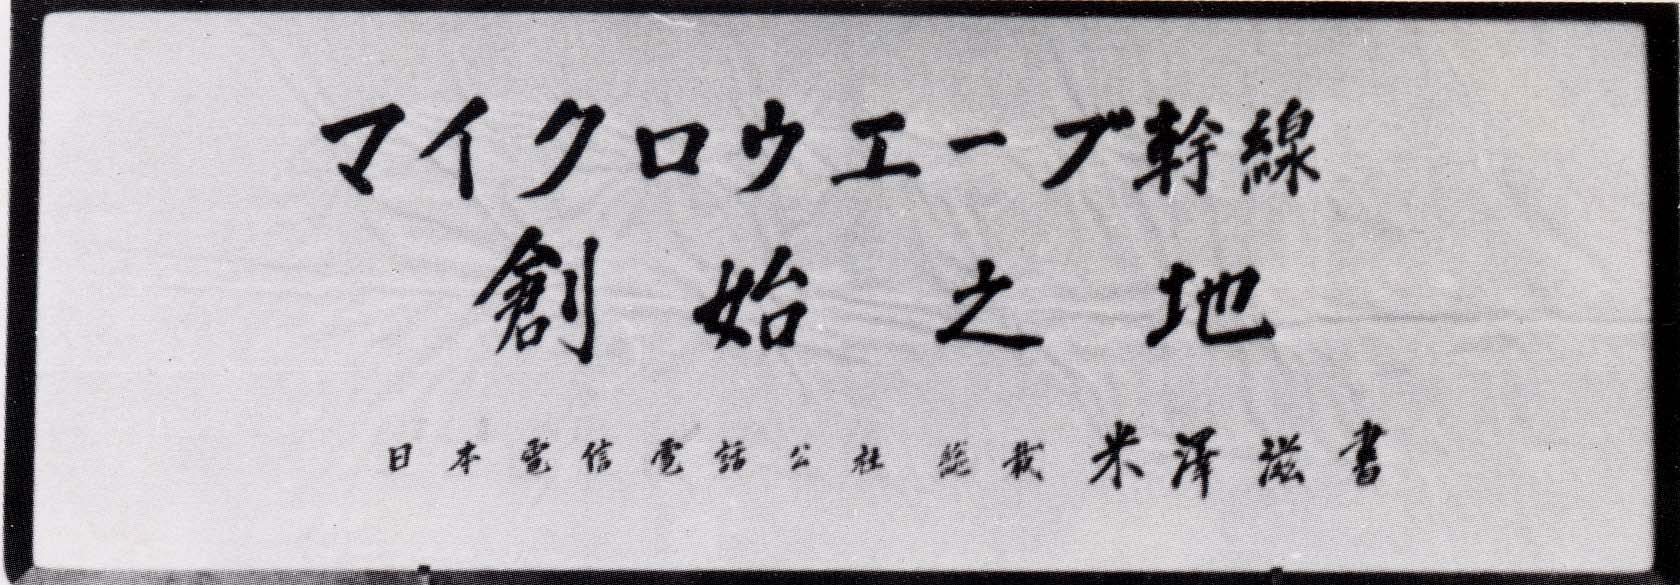 マイクロウエーブ幹線
創始之地
日本電信電話公社総裁米澤滋書